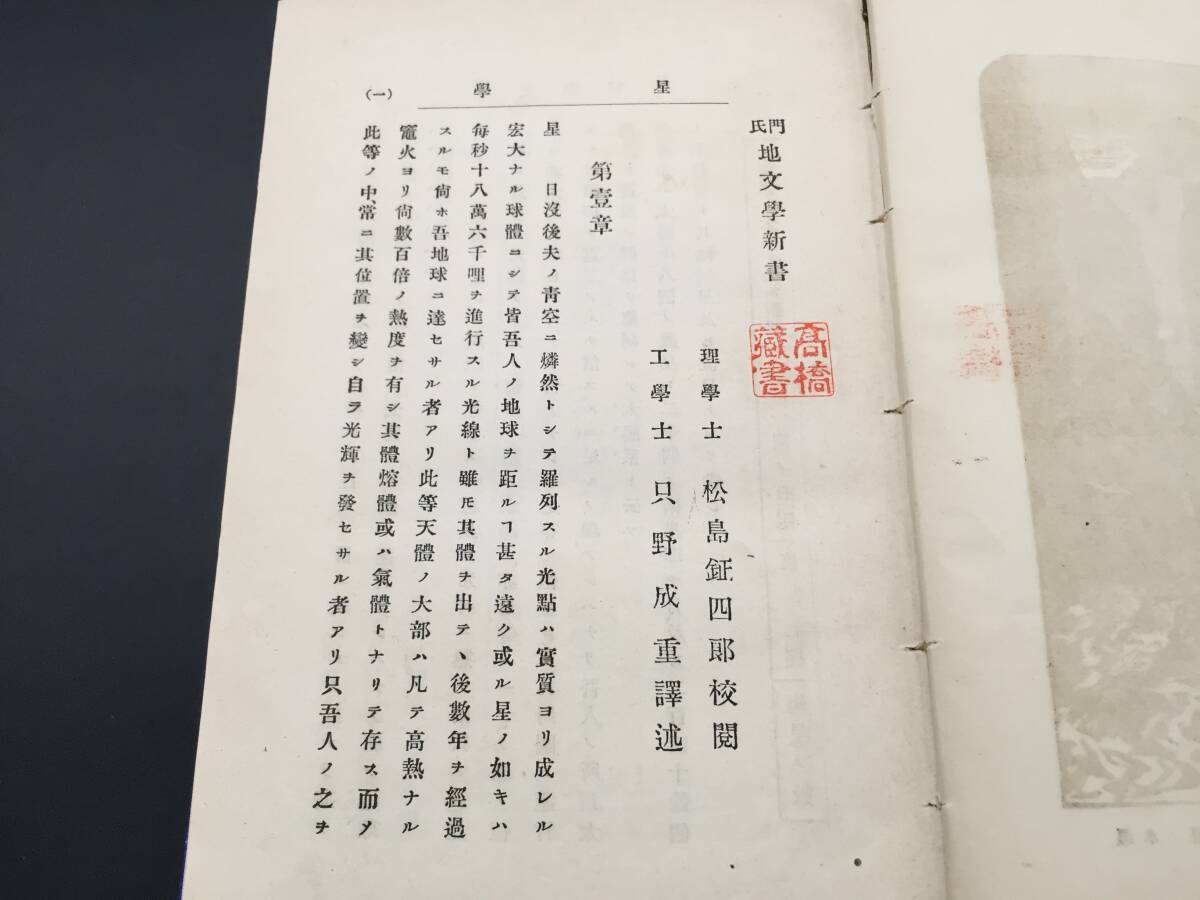 門氏地文學新書
高橋
藏書
理學士 松島鉦四郎校閲
工學士 只野成重譯述
星學
(一)
第壹章
星 日沒後夫ノ靑空ニ燐然トシテ羅列スル光點ハ實質ヨリ成レル
宏大ナル球體ニシテ皆吾人ノ地球ヲ距ルヿ甚タ遠ク或ル星ノ如キハ
每秒十八萬六千哩ヲ進行スル光線ト雖モ其體ヲ出テ、後數年ヲ經過
スルモ尙ホ吾地球ニ達セサル者アリ此等天體ノ大部ハ凡テ高熱ナル
竈火ヨリ尙數百倍ノ熱度ヲ有シ其體熔體或ハ氣體トナリテ存ス而メ
此等ノ中、常ニ其位置ヲ變シ自ラ光輝ヲ發セサル者アリ只吾人ノ之ヲ